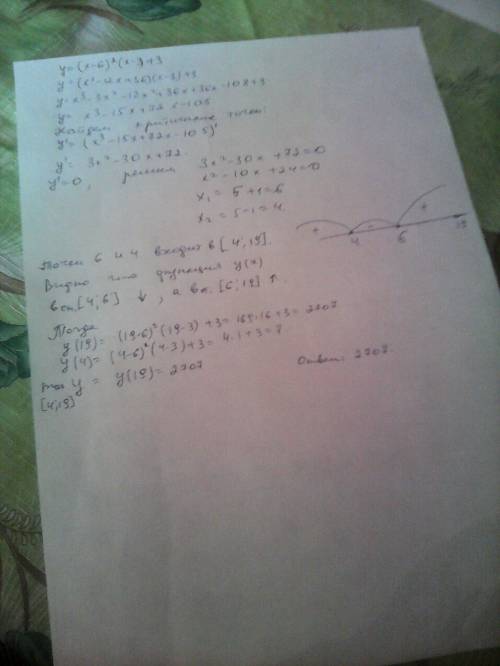 y=(x-6)²(x-3)+3
y=(x²-12x+36)(x-3)+3
y=x³-3x²-12x²+36x+36x-108+3
y= x³-15x+72x-105
Найдем критические точки:
y'=(x³-15x+72x-105)'
y'= 3x²-30x+72.
y'=0, решим 3x²-30x+72=0
x²-10x+24=0
x₁= 5+1=6
x₂=5-1=4.
+ - +
4 6 19
Точки 6 и 4 входят в [4,19].
Видно что функция y(x)
в on.[4;6] ↓, а в n. [6;19] ↑.
Тогда
y(19)= (19-6)²(19-3)+3=169·16+3=2707
y(4)=(4-6)²(4-3)+3=4·1+3=7
max y = y(19)=2707
[4;19]
Ответ: 2707.